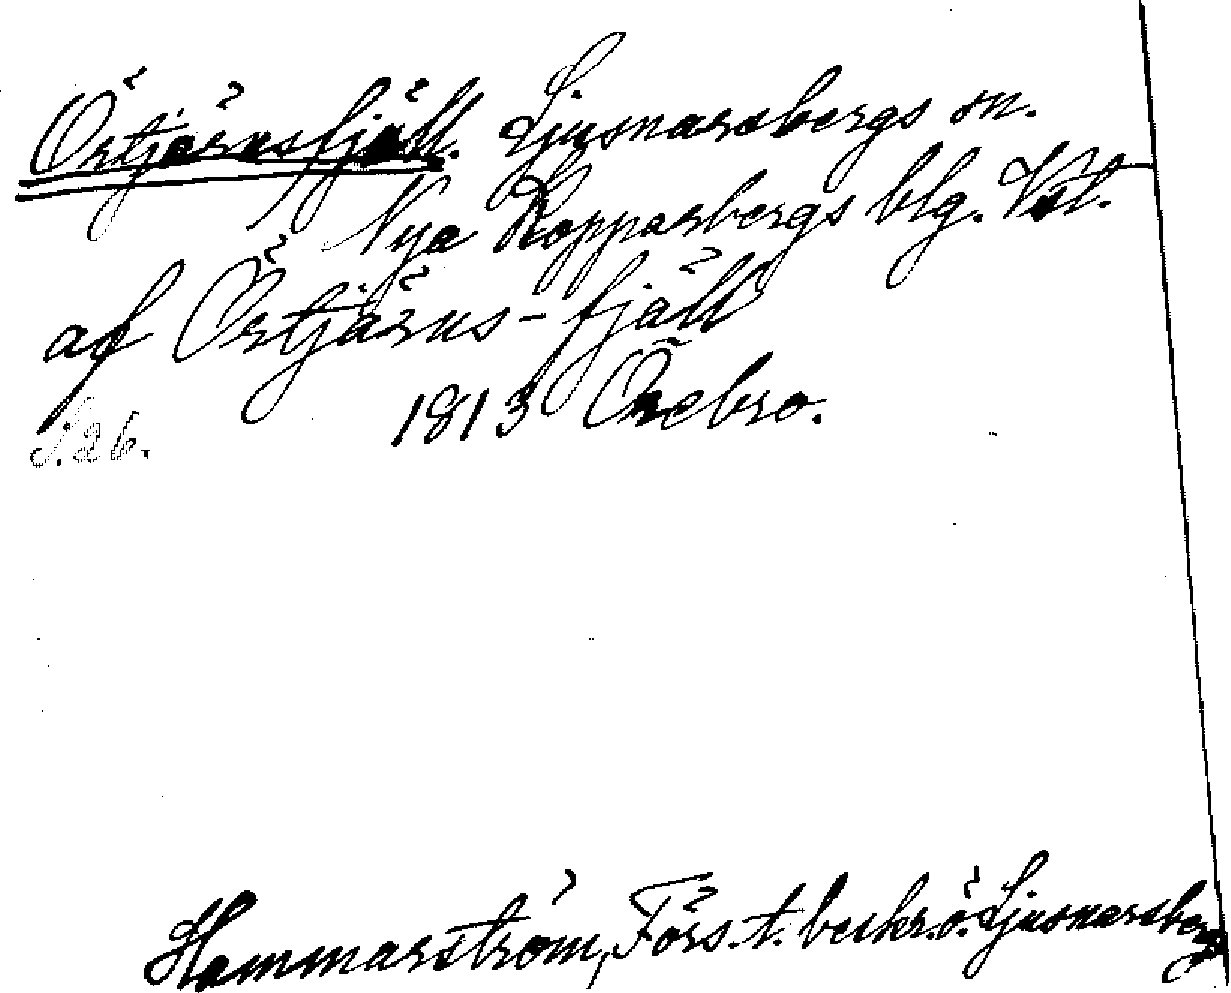 Örtjärnsfjäll. Ljusnarsbergs sn.
Nya Kopparbergs blg. Vstl.
af Örtjärns-fjäll
1813 Örebro.
S. 26.
Hammarström, Förs. t. beskr. ö. Ljusnarsberg